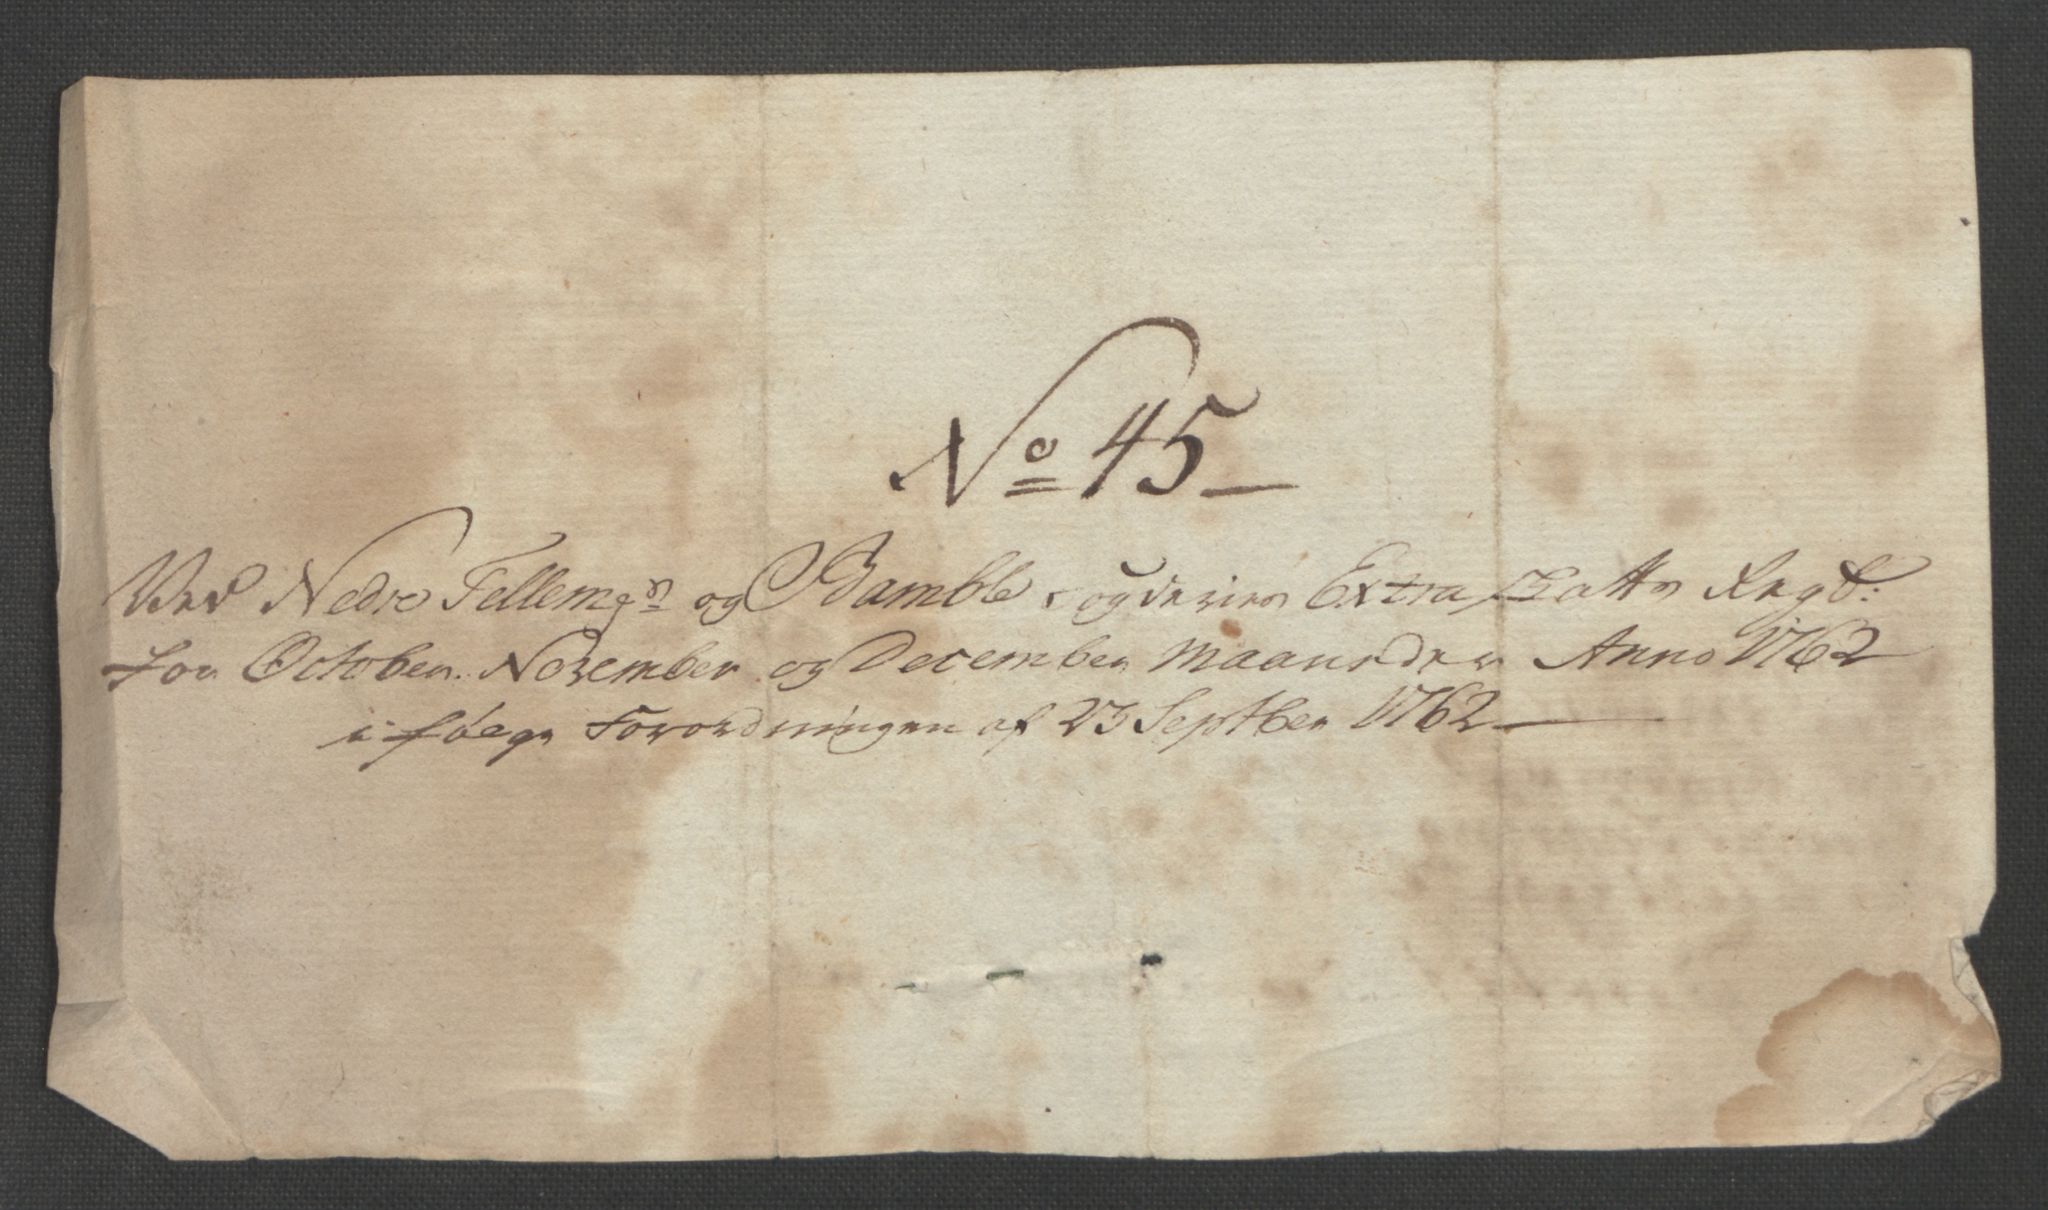 No 45
Ved Nedre Tellemgn og Bamble fogderies Extra Skatts Regt:
for October. November og December Maaneder Anno 1762
ifølge Forordningen af 23 Septber 1762